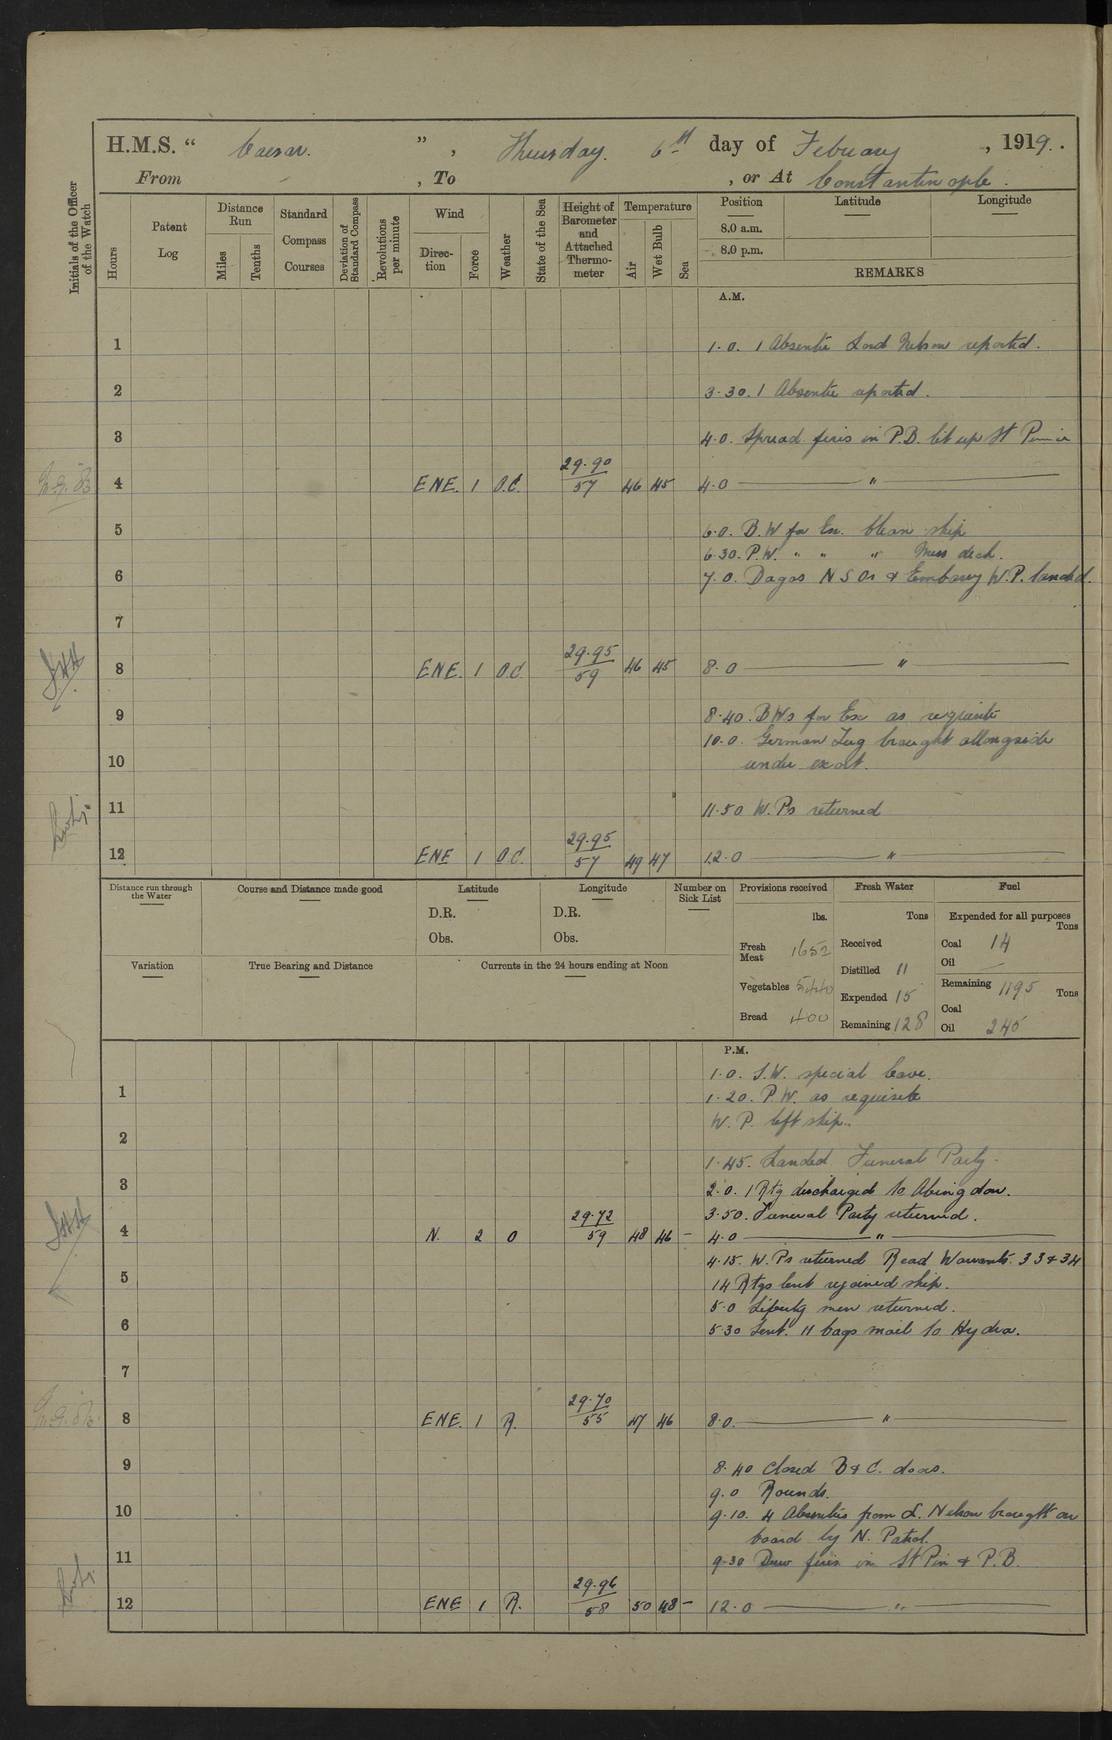 H.M.S. “ Caesar. ” , Thursday. 6th day of Febuary , 1919.
From - , To , or At Constantinople.
Initials of the Officer of the Watch
Hours
Patent Log
Distance Run
Miles
Tenths
Standard Compass Courses
Deviation of Standard Compass
Revolutions per minute
Wind
Direction
Force
Weather
State of the Sea
Height of Barometer and Attached Thermometer
Temperature
Air
Wet Bulb
Sea
Position
Latitude
Longitude
8.0 a.m.
8.0 p.m.
REMARKS
A.M.
1 1.0. 1 Absentee Lord Nelson reported.
2 3.30. 1 Absentee reported.
3 4.0. Spread fires in P.B. lit up St
4 ENE. 1 O.C. 29.90/57 46 45 4.0 "
5 6.0. B.W for Ex. Clean ship
6.30. P.W. " " " Mess deck.
6 7.0. N S Os & Embassy W.P. landed.
7
8 ENE. 1 O.C. 29.95/59 46 45 8.0 "
9 8.40. B Ws for Ex as requisite
10.0. German Tug brought allongside
10 under escort.
11 11.50 W.Ps returned
12 ENE 1 O.C. 29.95/57 49 47 12.0 "
Distance run through the Water
Course and Distance made good
Latitude
D.R.
Obs.
Longitude
D.R.
Obs.
Number on Sick List
Provisions received
lbs.
Fresh Meat 1652
Vegetables 5440
Bread 400
Fresh Water
Tons
Received
Distilled 11
Expended 15
Remaining 128
Fuel
Expended for all purposes
Tons
Coal 14
Oil -
Remaining
Tons
Coal 1195
Oil 245
Variation
True Bearing and Distance
Currents in the 24 hours ending at Noon
P.M.
1.0. S.W. special leave.
1 1.20. P.W. as requisite
W.P. left ship.
2
1.45. Landed Funeral Party.
3 2.0. 1 Rtg discharged to Abingdon.
3.50. Funeral Party returned.
4 N. 2 O 29.72/59 48 46 - 4.0 "
4.15. W.Ps returned Read Warrants. 33 & 34
5 14 Rtgs lent rejoined ship.
5.0 Liberty men returned.
6 5.30 Sent. 11 bags mail to Hydra.
7
8 ENE. 1 R. 29.70/55 47 46 8.0. "
9 8.40 Closed B & C. doors.
9.0 Rounds.
10 9.10. 4 Absentees from L. Nelson brought on
board by N. Patrol.
11 9.30 Drew fires in St Pin & P.B.
12 ENE 1 R. 29.96/58 50 48 - 12.0 "